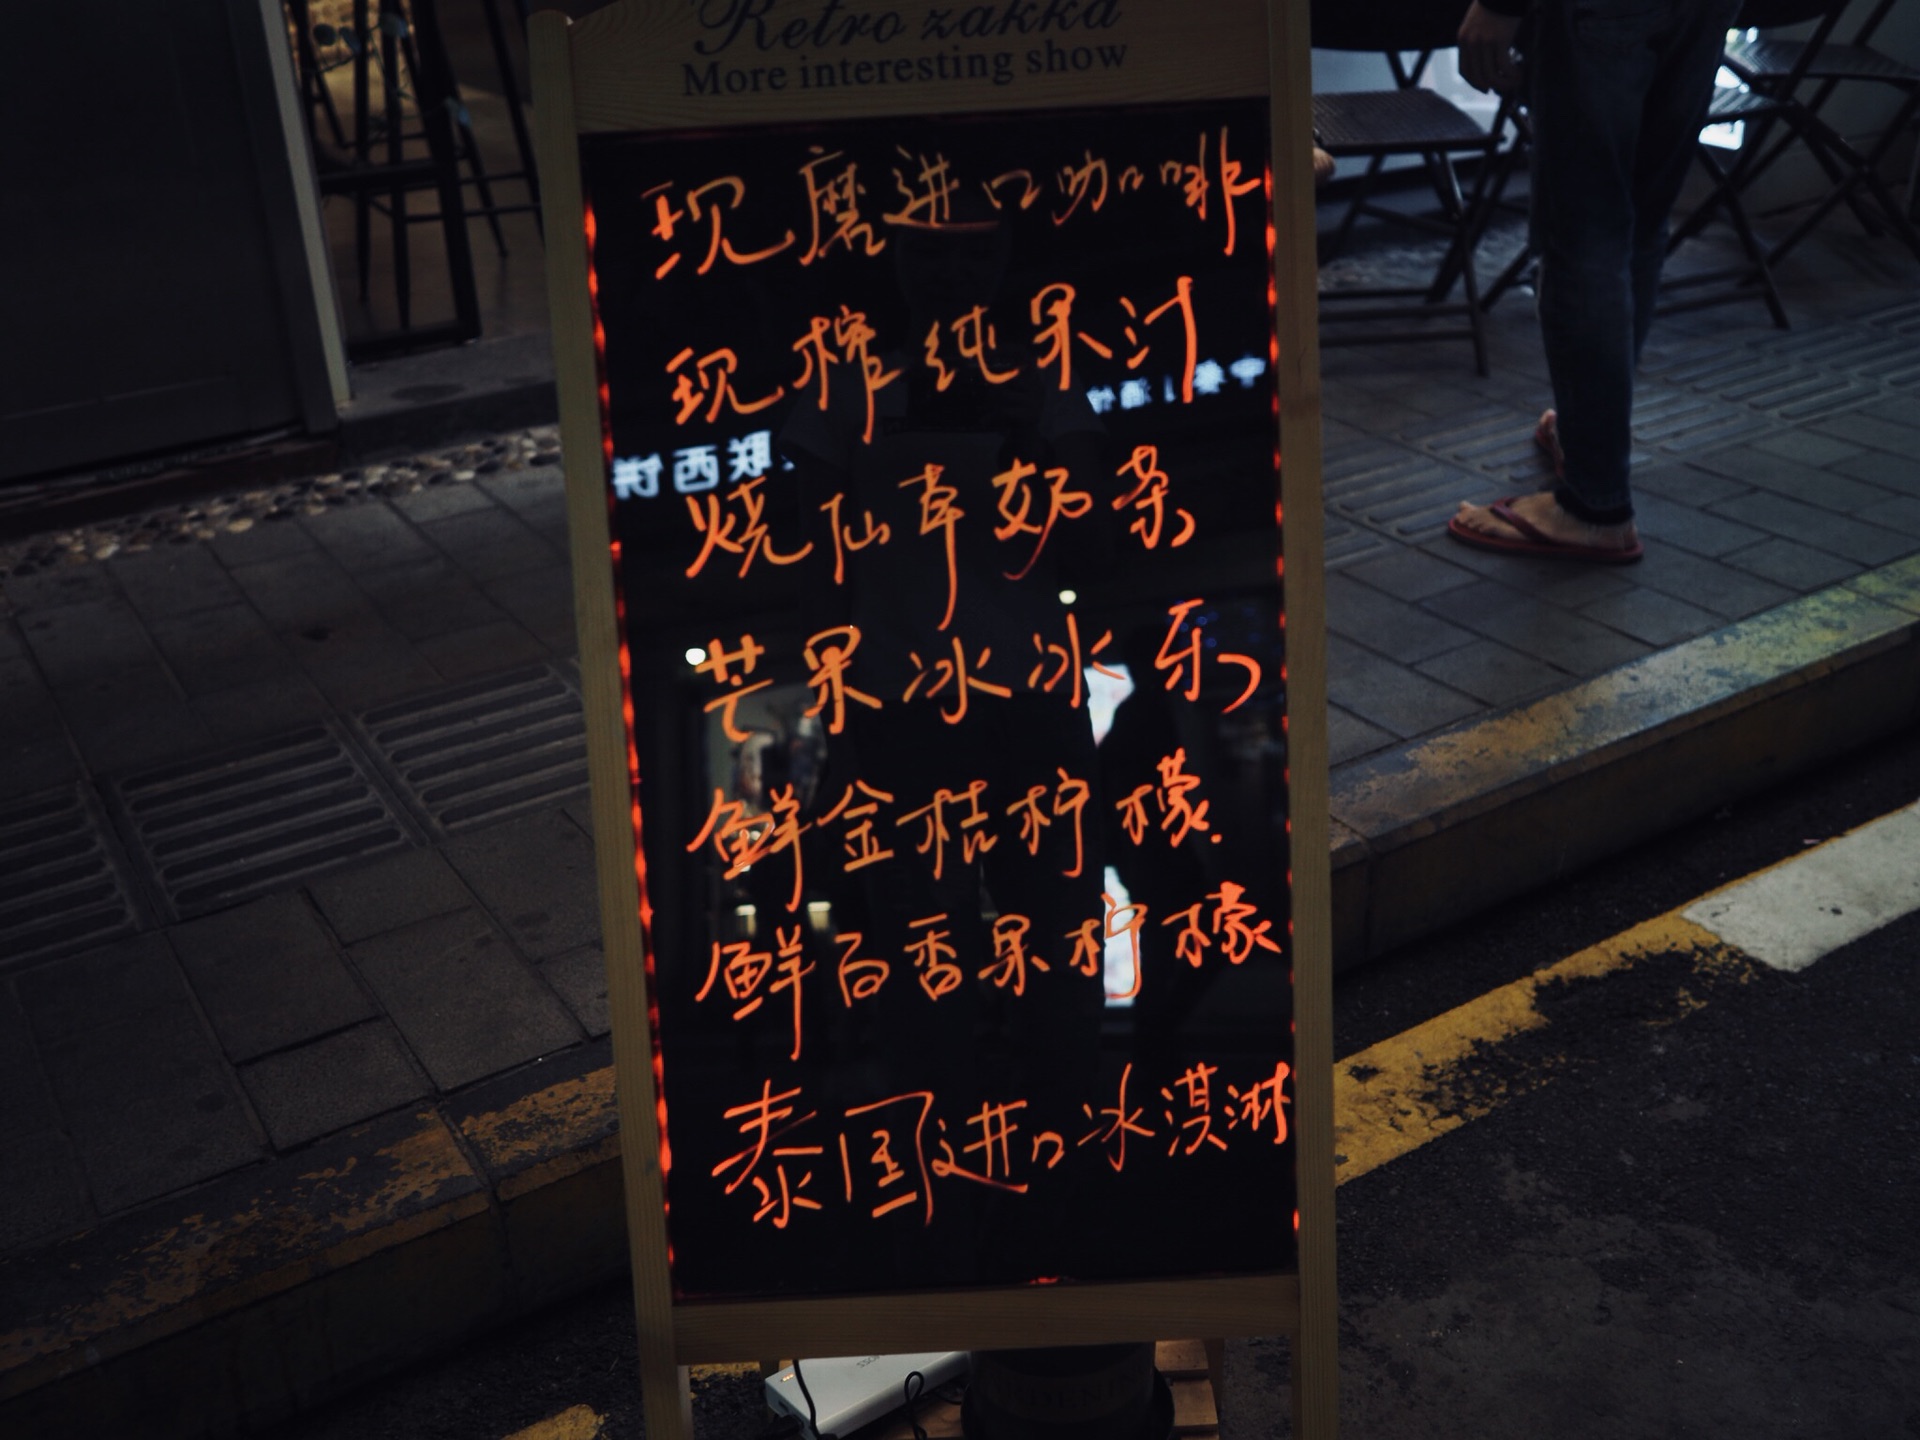 Retro zakka
More interesting show
现磨进口咖啡
现榨纯果汁
烧仙草奶茶
芒果冰冰乐
鲜金桔柠檬
鲜百香果柠檬
泰国进口冰淇淋